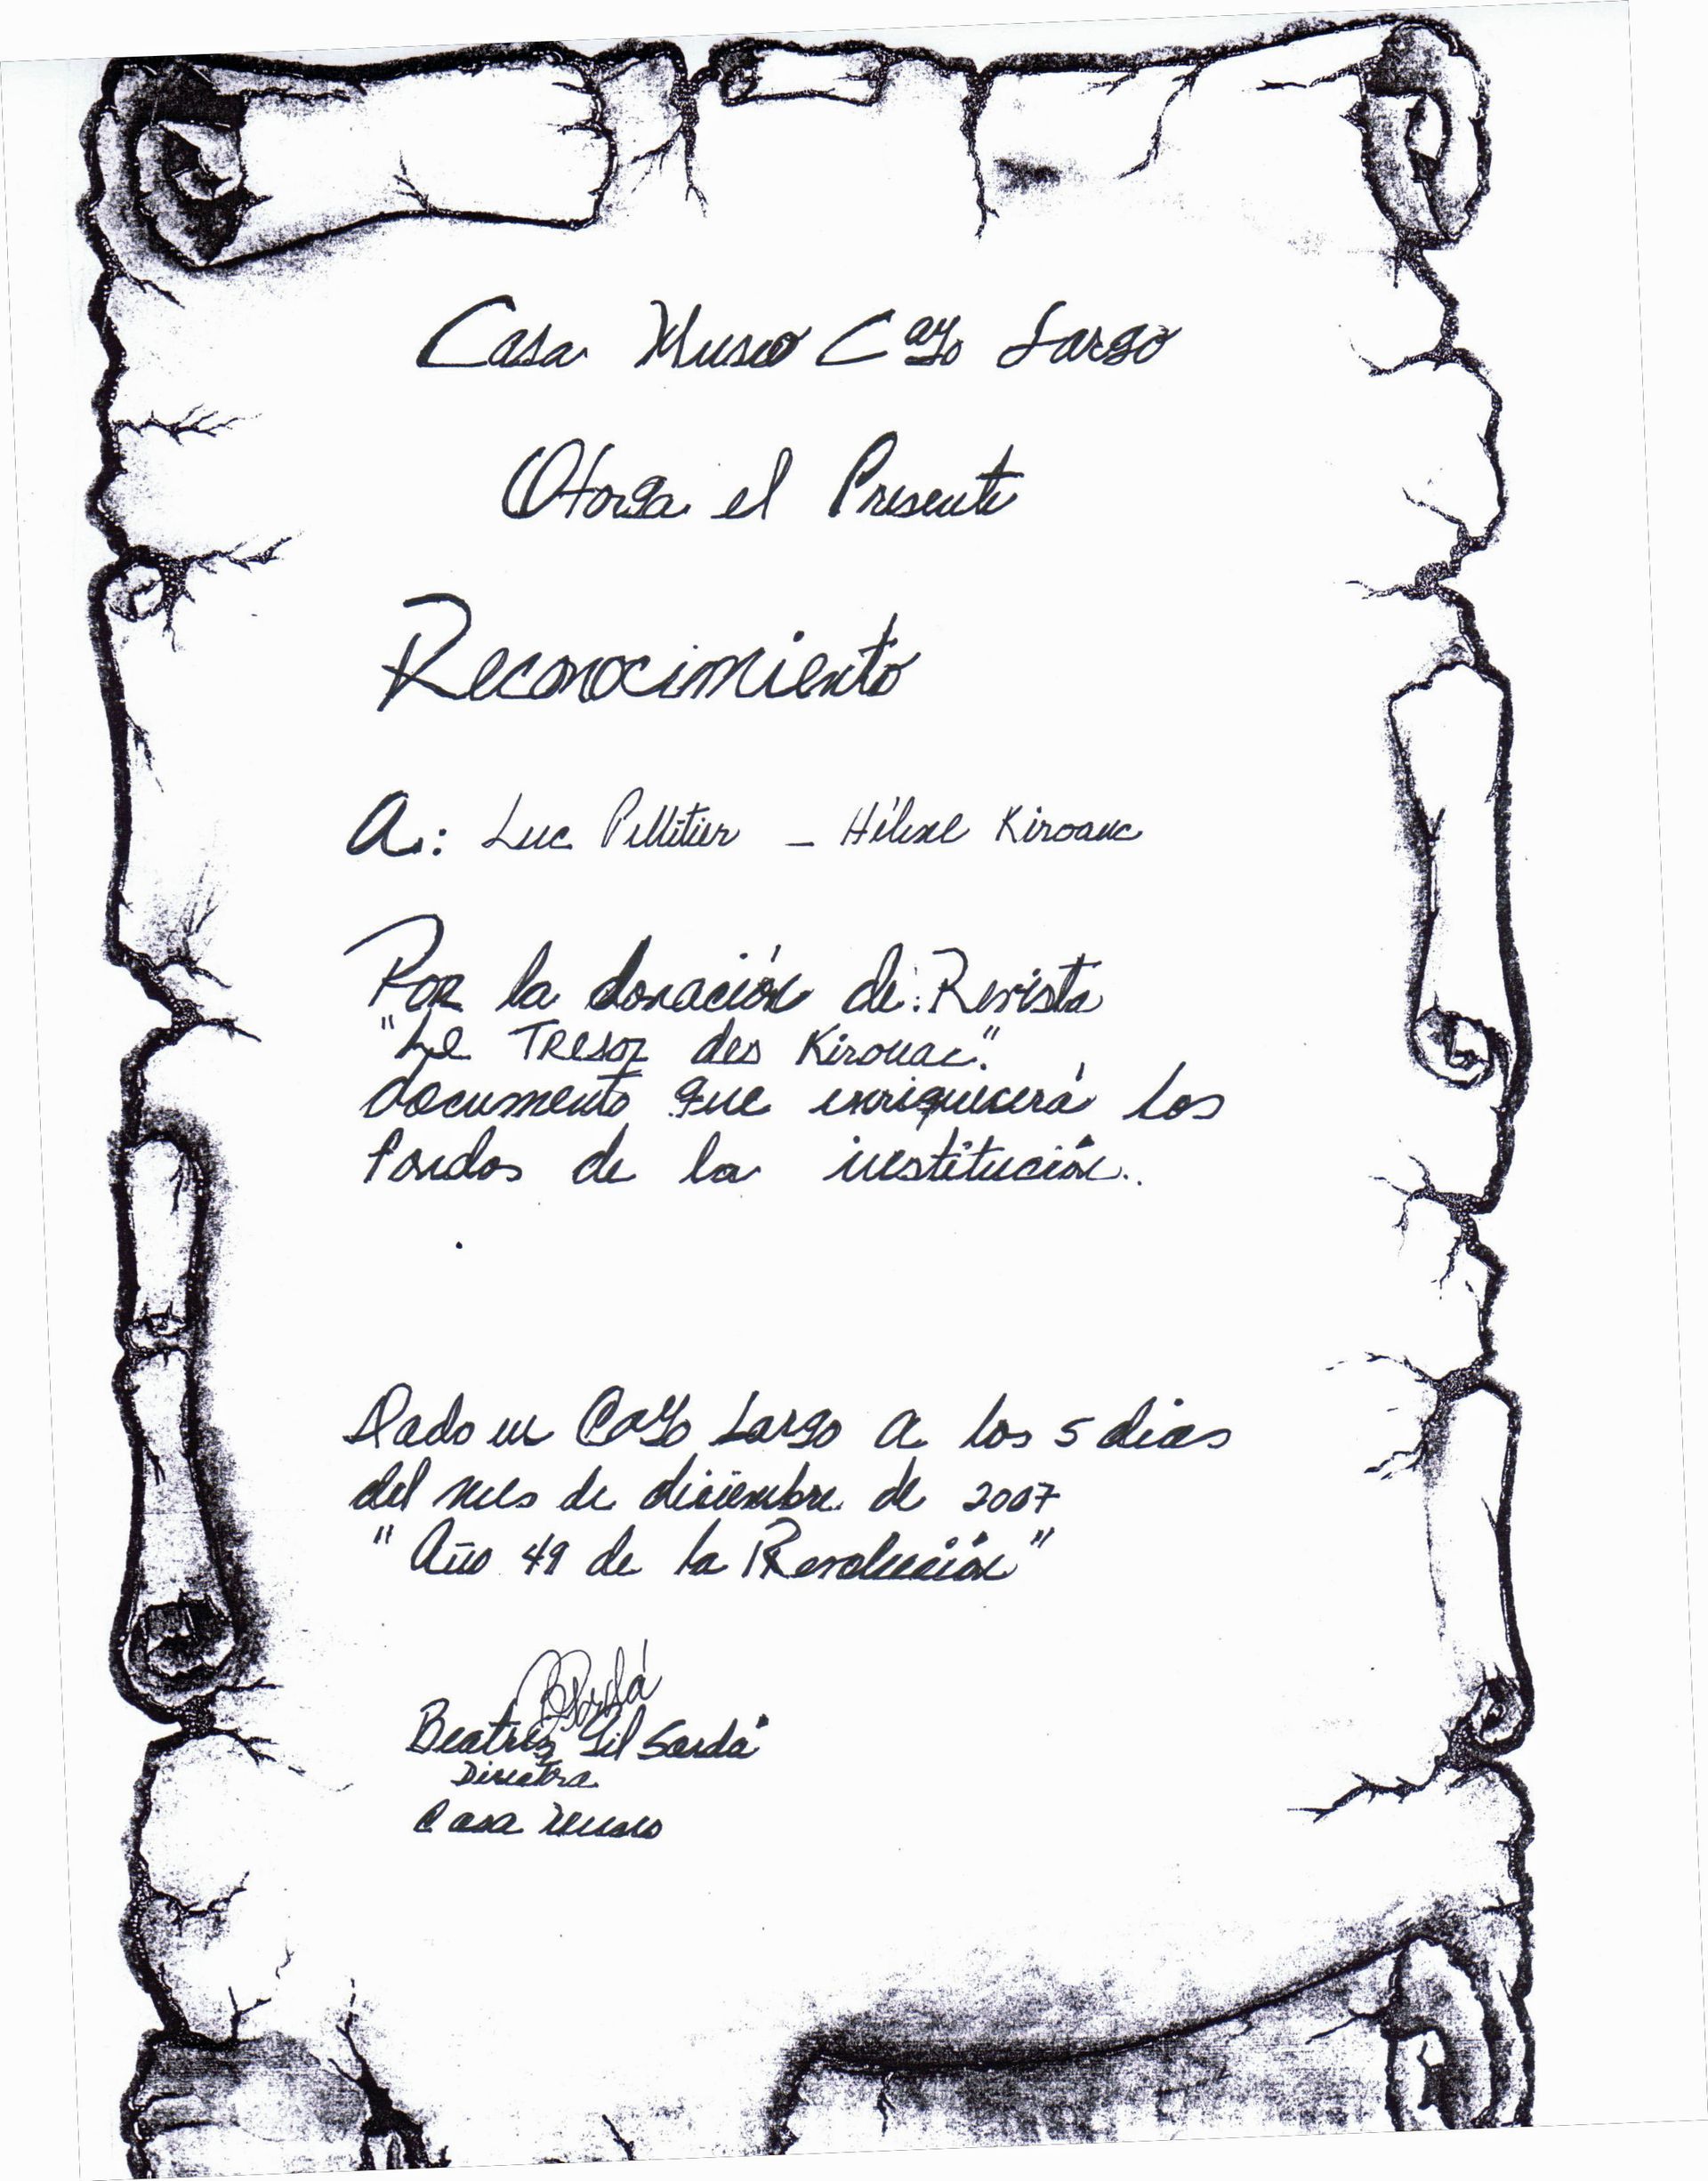 Casa Museo Cayo Largo
Otorga el Presente
Reconocimiento
A: Luc Pellitier – Hélene Kiroauc
Por la donación de: Revista
"Le Tresor des Kirouac".
documento que enriquecerá los
fondos de la institución.
Dado en Cayo Largo a los 5 dias
del mes de diciembre de 2007
"Año 49 de la Revolución"
BSardá
Beatriz Gil Sardá
Directora
Casa Museo